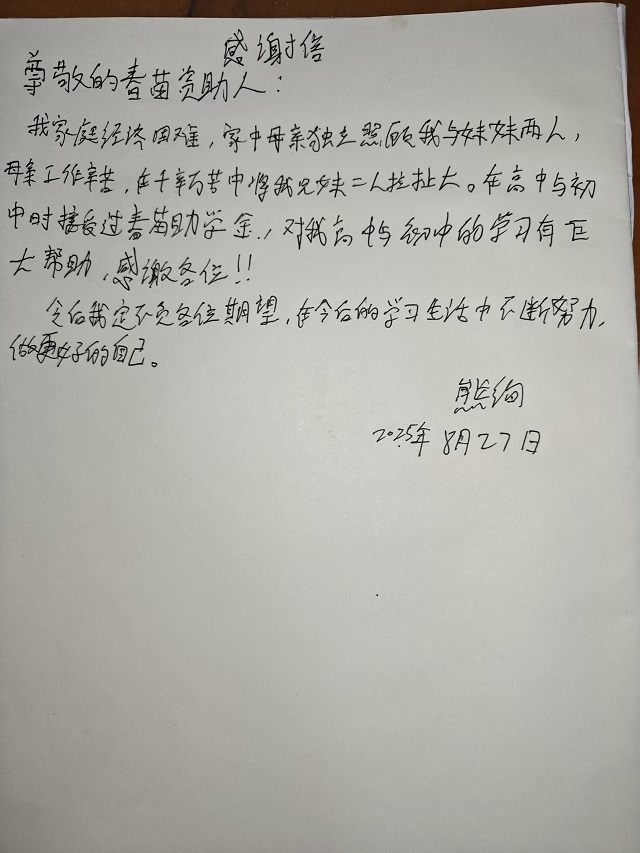 感谢信
尊敬的春苗资助人：
我家庭经济困难，家中母亲独立照顾我与妹妹两人，
母亲工作辛苦，在千辛万苦中将我兄妹二人拉扯大。在高中与初
中时接受过春苗助学金，对我高中与初中的学习有巨
大帮助，感谢各位!!
今后我定不负各位期望，在今后的学习生活中不断努力，
做更好的自己。
熊绚
2025年8月27日